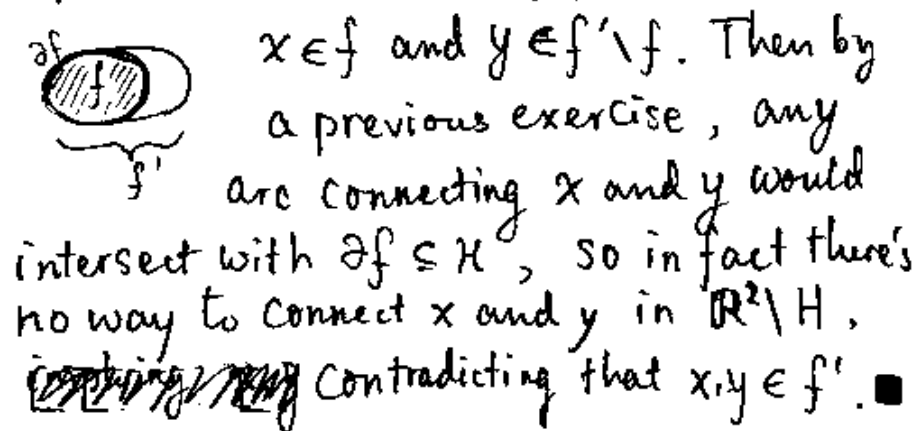 ∂f x ∈ f and y ∈ f'\f. Then by
f a previous exercise, any
f' arc connecting x and y would
intersect with ∂f ⊆ H, so in fact there's
no way to connect x and y in ℝ²\H,
contradicting that x,y ∈ f'. ■